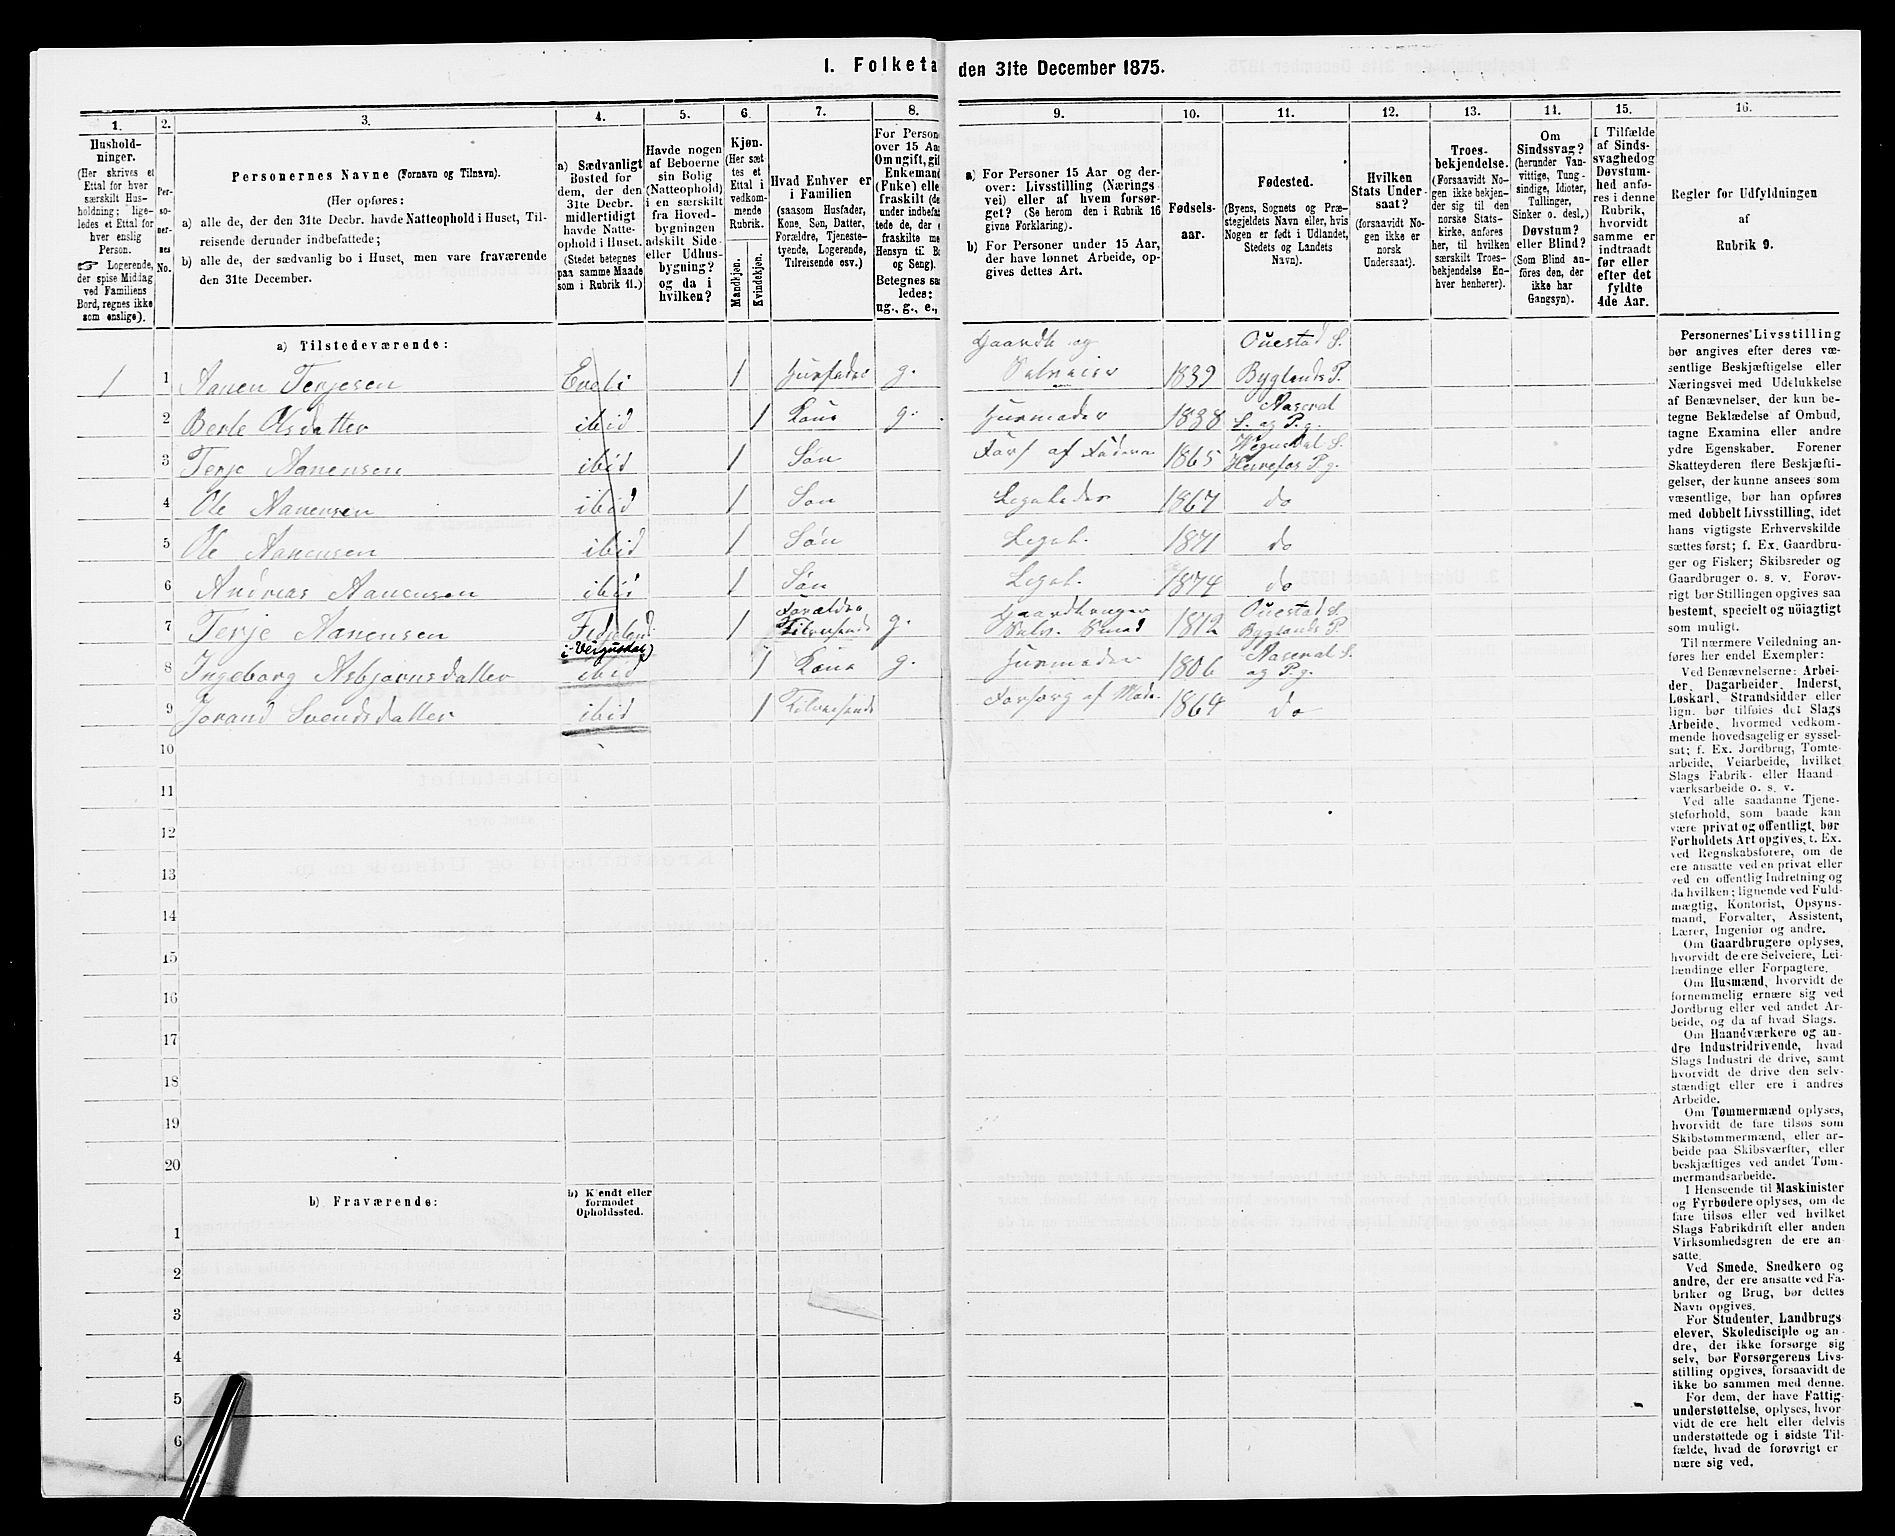 1. Folketa den 31te December 1875.
1.
Hushold-
ninger.
(Her skrives et
Ettal for hver
særskilt Hus-
holdning; lige-
ledes et Ettal for
hver enslig
Person.
☞ Logerende,
der spise Middag
ved Familiens
Bord, regnes ikke
som enslige).
2.
Per-
so-
ner-
nes
No.
3.
Personernes Navne (Fornavn og Tilnavn).
(Her opføres:
a) alle de, der den 31te Decbr. havde Natteophold i Huset, Til-
reisende derunder indbefattede;
b) alle de, der sædvanlig bo i Huset, men vare fraværende
den 31te December.
4.
a) Sædvanligt
Bosted for
dem, der den
31te Decbr.
midlertidigt
havde Natte-
ophold i Huset.
(Stedet betegnes
paa samme Maade
som i Rubrik 11.)
5.
Havde nogen
af Beboerne
sin Bolig
(Natteophold)
i en særskilt
fra Hoved-
bygningen
adskilt Side-
eller Udhus-
bygning?
og da i
hvilken?
6.
Kjøn.
(Her sæt-
tes et
Ettal i
vedkom-
mende
Rubrik.
Mandkjøn.
Kvindekjøn.
7.
Hvad Enhver er
i Familien
(saasom Husfader,
Kone, Søn, Datter,
Forældre, Tjeneste-
tyende, Logerende,
Tilreisende osv.)
8.
For Person
over 15 Aa
Om ugift, gif
Enkemand
(Fuke) elle
fraskilt (de
under indbefat
tede de, der e
fraskilte me
Hensyn til Bo
og Seng).
Betegnes sa
ledes:
ug., g., e.,
9.
a) For Personer 15 Aar og der-
over: Livsstilling (Nærings-
vei) eller af hvem forsør-
get? (Se herom den i Rubrik 16
givne Forklaring).
b) For Personer under 15 Aar,
der have lønnet Arbeide, op-
gives dettes Art.
10.
Fødsels-
aar.
11.
Fødested.
(Byens, Sognets og Præ-
stegjeldets Navn eller, hvis
Nogen er født i Udlandet,
Stedets og Landets
Navn).
12.
Hvilken
Stats Under-
saat?
(forsaavidt No-
gen ikke er
norsk
Undersaat).
13.
Troes-
bekjendelse.
(Forsaavidt No-
gen ikke bekjen-
der sig til den
norske Stats-
kirke, anføres
her, til hvilken
særskilt Troes-
bekjendelse En-
hver henhører).
14.
Om
Sindssvag?
(herunder Van-
vittige, Tung-
sindige, Idioter,
Tullinger,
Sinker o. desl.)
Døvstum?
eller Blind?
(Som Blind an-
føres den, der
ikke har
Gangsyn).
15.
I Tilfælde
af Sinds-
svaghed og
Døvstum-
hed anfø-
res i denne
Rubrik,
hvorvidt
samme er
indtraadt
før eller
efter det
fyldte
4de Aar.
16.
Regler for Udfyldningen
af
Rubrik 9.
a) Tilstedeværende:
1 1 Aanen Terjesen Eveli 1 Husfader g. Gaardb og Selveier 1839 Ouestad S. Byglands P.
2 Berte Olsdatter ibid 1 Kone g. Husmoder 1838 Aaseral S. og P.g.
3 Terje Aanensen ibid 1 Søn Fors af Fader 1865 Vegusdal S. Herefos P.g.
4 Ole Aanensen ibid 1 Søn 1867 do
5 Ole Aanensen ibid 1 Søn 1871 do
6 Andreas Aanensen ibid 1 Søn 1874 do
7 Terje Aanensen i Vegusdal 1 Forældre Tilreisende g. Gaardbruger Selv. 1812 Ouestad S. Byglands P.
8 Ingeborg Asbjørnsdatter ibid 1 Kone g. Husmoder 1806 Aaseral S. og P.g.
9 Jorand Svendsdatter ibid 1 Tilreisende Forsørg af Mode. 1864 do
10
11
12
13
14
15
16
17
18
19
20
b) Fraværende:
b) Kjendt eller
formodet
Opholdssted.
1
2
3
4
5
6
Personernes' Livsstilling
bør angives efter deres væ-
sentlige Beskjæftigelse eller
Næringsvei med Udelukkelse
af Benævnelser, der kun be-
tegne Beklædelse af Ombud,
tagne Examina eller andre
ydre Egenskaber. Forener
Skatteyderen flere Beskjæfti-
gelser, der kunne ansees som
væsentlige, bør han opføres
med dobbelt Livsstilling, idet
hans vigtigste Erhvervskilde
sættes først; f. Ex. Gaardbru-
ger og Fisker; Skibsreder og
Gaardbruger o. s. v. Forøv-
rigt bør Stillingen opgives saa
bestemt, specielt og nöiagtigt
som muligt.
Til nærmere Veiledning an-
føres her endel Exempler:
Ved Benævnelserne: Arbei-
der, Dagarbeider, Inderst,
Løskarl, Strandsidder eller
lign. bør tilføies det Slags
Arbeide, hvormed vedkom-
mende hovedsagelig er syssel-
sat; f. Ex. Jordbrug, Tomte-
arbeide, Veiarbeide, hvilket
Slags Fabrik- eller Haand
værksarbeide o. s. v.
Ved alle saadanne Tjene-
steforhold, som baade kan
være privat og offentligt, bør
Forholdets Art opgives, t. Ex.
ved Regnskabsførere, om de
ere ansatte ved en privat eller
ved en offentlig Indretning og
da hvilken; lignende ved Fuld-
mægtig, Kontorist, Opsyns-
mand, Forvalter, Assistent,
Lærer, Ingeniør og andre.
Om Gaardbrugere oplyses,
hvorvidt de ere Selveiere, Lei-
lændinge eller Forpagtere.
Om Husmænd, hvorvidt de
fornemmelig ernære sig ved
Jordbrug eller ved andet Ar-
beide, og da af hvad Slags.
Om Haandværkere og an-
dre Industridrivende, hvad
Slags Industri de drive, samt
hvorvidt de drive den selv-
stændigt eller ere i andres
Arbeide.
Om Tømmermænd oplyses,
hvorvidt de fare tilsøs som
Skibstømmermænd, eller ar-
beide paa Skibsværfter, eller
beskjæftiges ved andet Tøm-
mermandsarbeide.
I Henseende til Maskinister
og Fyrbødere oplyses, om de
fare tilsøs eller ved hvilket
Slags Fabrikdrift eller anden
Virksomhedsgren de ere an-
satte.
Ved Smede, Snedkere og
andre, der ere ansatte ved Fa-
briker og Brug, bør dettes
Navn opgives.
For Studenter, Landbrugs
elever, Skoledisciple og an-
dre, der ikke forsørge sig
selv, bør Forsørgerens Livs-
stilling opgives, forsaavidt de
ikke bo sammen med denne.
For dem, der have Fattig-
understøttelse, oplyses, hvor-
vidt de ere helt eller delvis
understøttede og i sidste Til-
fælde, hvad de forøvrigt er
nære sig ved.